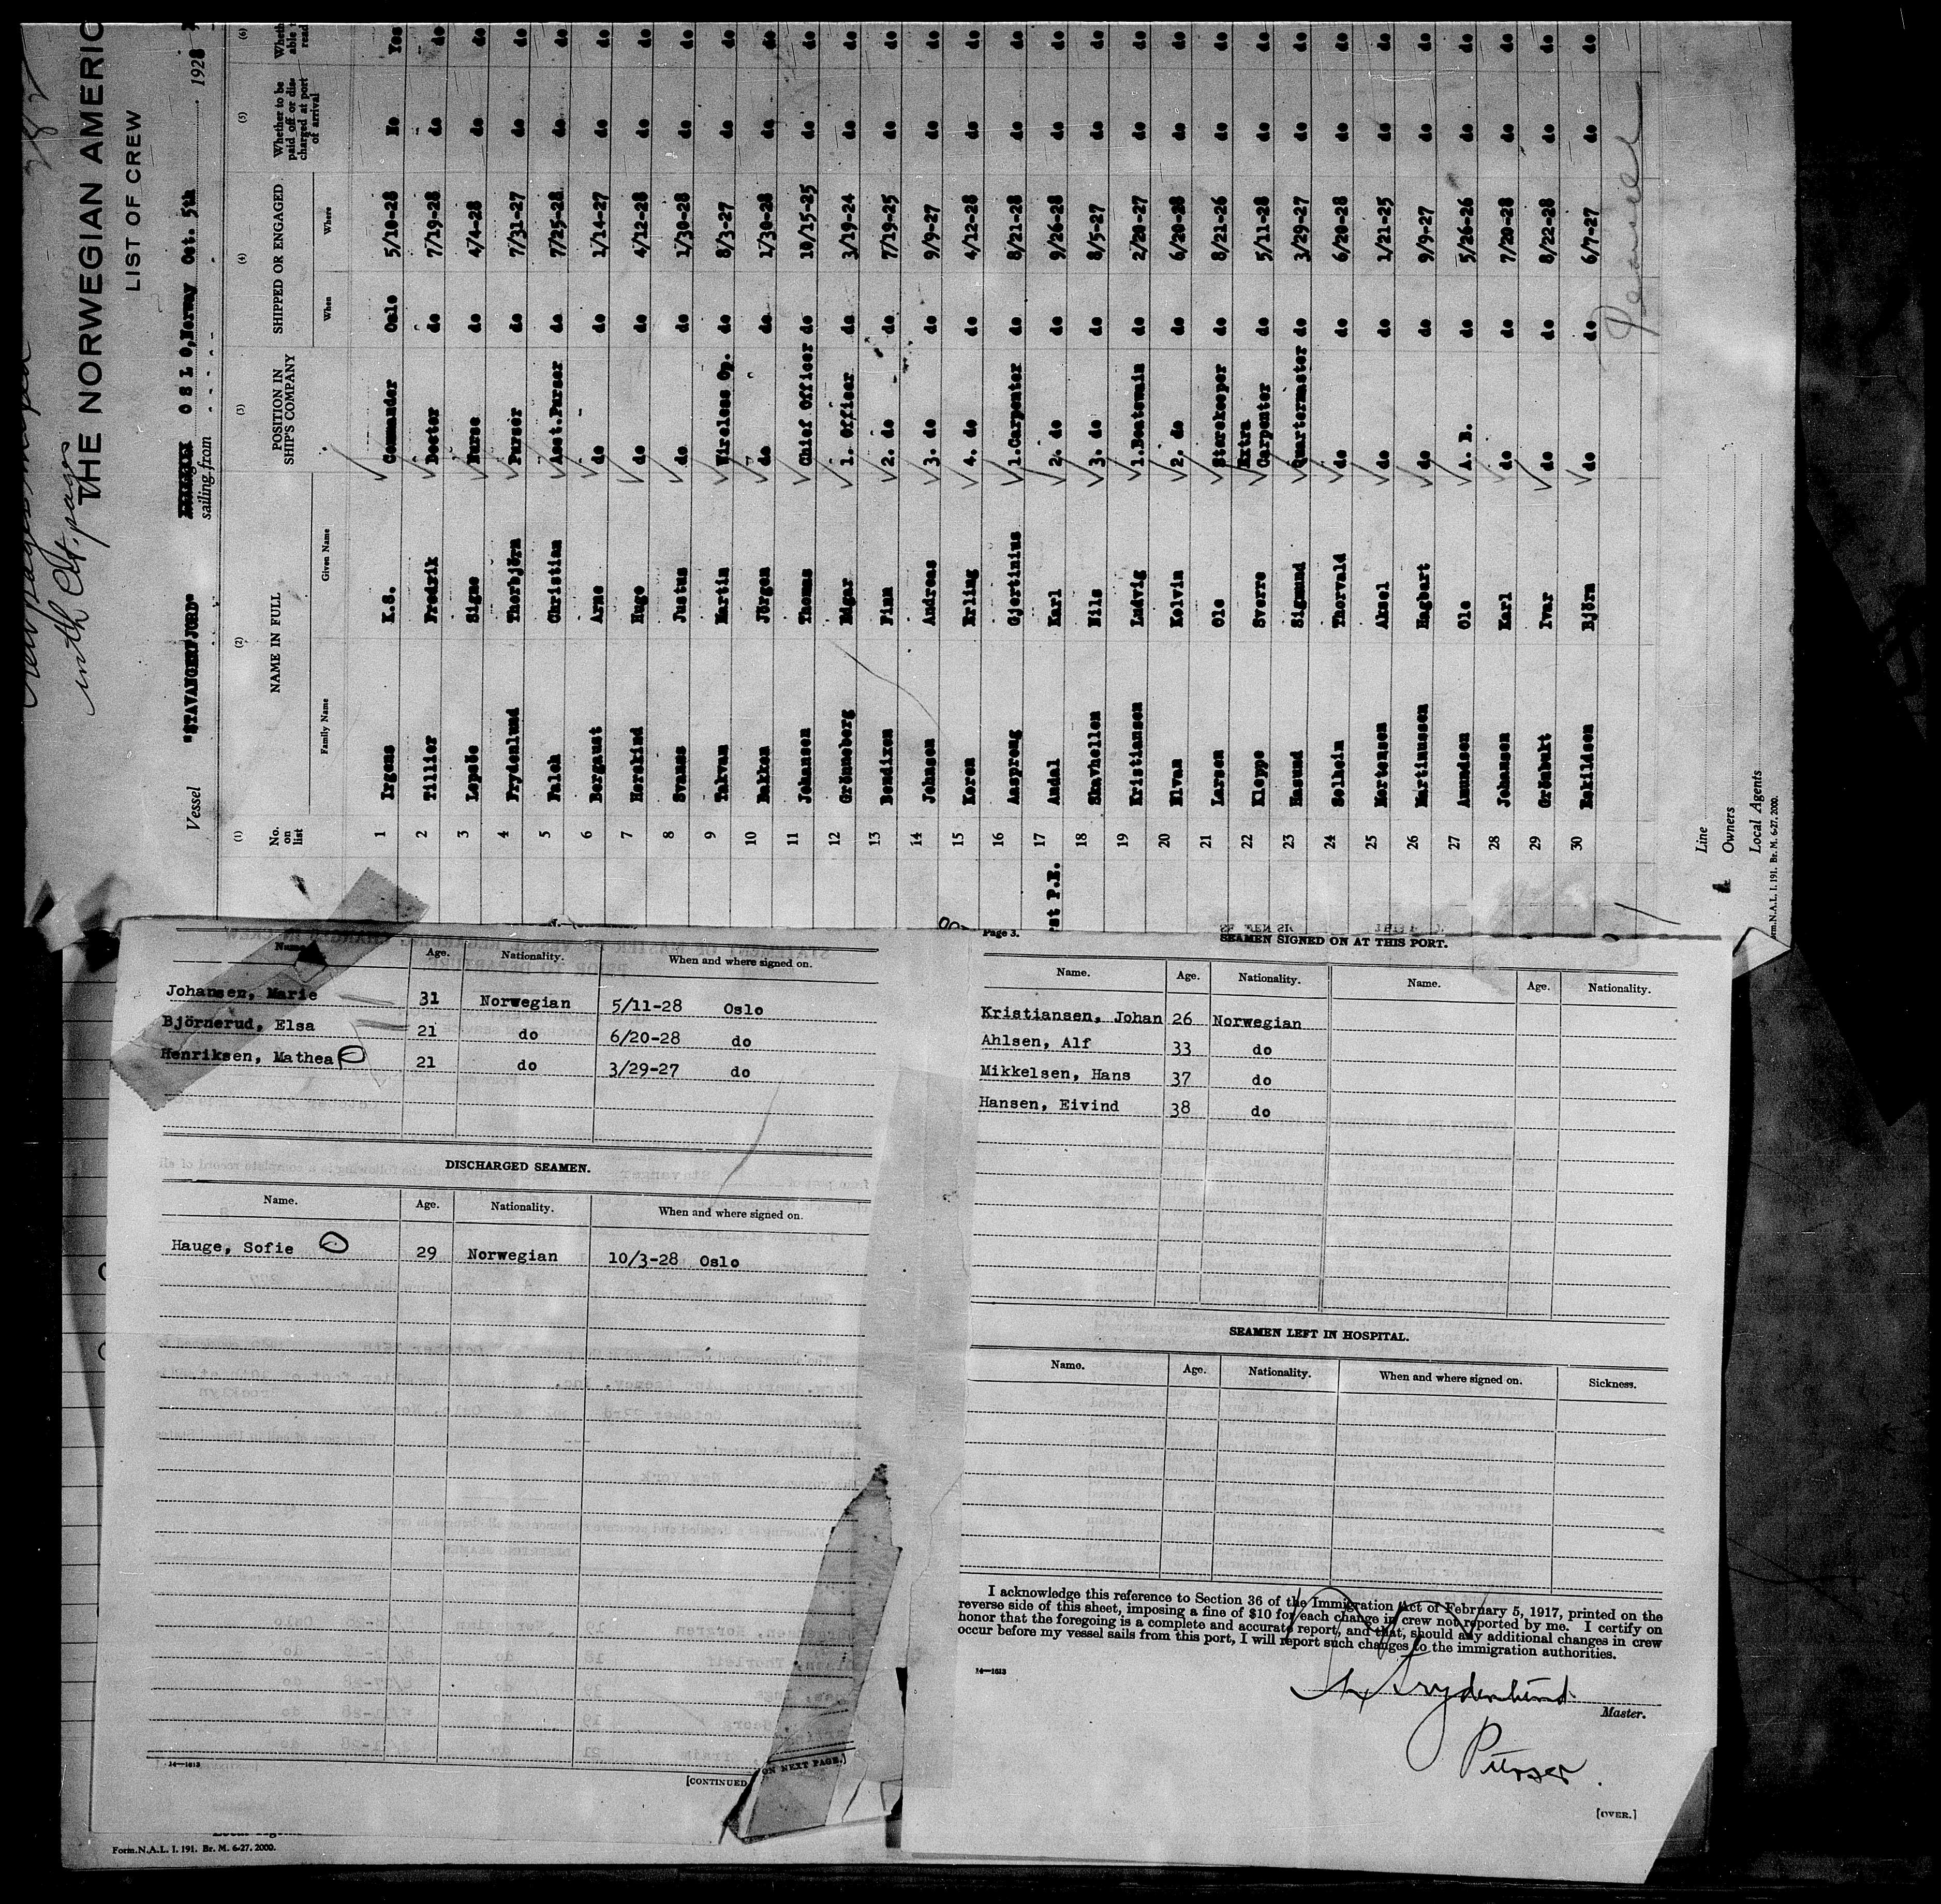 THE NORWEGIAN AMERIC
LIST OF CREW
with Att. pages
Vessel "STAVANGERFJORD" sailing from O S L O, Norway Oct. 5th 1928
(1) (2) (3) (4) (5) (6)
No. on list NAME IN FULL POSITION IN SHIP'S COMPANY SHIPPED OR ENGAGED Whether to be paid off or discharged at port of arrival Wheth able t read
Family Name Given Name When Where
1 Irgens K.S. Commander Oslo 5/10-28 No Yes
2 Tillier Fredrik Doctor do 7/19-28 do do
3 Lepsöe Signe Nurse do 4/4-28 do do
4 Frydenlund Thorbjörn Purser do 7/31-27 do do
5 Falch Christian Asst.Purser do 7/25-28 do do
6 Bergaust Arne do do 1/14-27 do do
7 Herskind Hugo do do 4/12-28 do do
8 Svanøs Justus do do 1/30-28 do do
9 Takvam Martin Wireless Op. do 8/3-27 do do
10 Bakken Jörgen do do 1/30-28 do do
11 Johansen Thomas Chief Officer do 10/15-25 do do
12 Grönneberg Edgar 1. Officer do 3/19-24 do do
13 Bendixen Finn 2. do do 7/19-25 do do
14 Johnsen Andreas 3. do do 9/9-27 do do
15 Koren Erling 4. do do 4/12-28 do do
16 Aaspreng Gjertinius 1.Carpenter do 8/21-28 do do
17 Andal Karl 2. do do 9/26-28 do do
18 Skavhellen Nils 3. do do 8/5-27 do do
19 Kristiansen Ludvig 1.Boatswain do 2/20-27 do do
20 Elvan Kolvin 2. do do 6/20-28 do do
21 Larsen Ole Storekeeper do 8/21-26 do do
22 Kleppe Sverre Extra Carpenter do 5/11-28 do do
23 Hasund Sigmund Quartermaster do 3/29-27 do do
24 Solheim Thorvald do do 6/20-28 do do
25 Mortensen Aksel do do 1/21-25 do do
26 Martinussen Hagbart do do 9/9-27 do do
27 Amundsen Ole A. B. do 5/26-26 do do
28 Johansen Karl do do 7/20-28 do do
29 Grönbukt Ivar do do 8/22-28 do do
30 Eskildsen Björn do do 6/7-27 do do
st P.E.
Line
Owners
Local Agents
orm.N.A.L. I. 191. Br. M. 6-27. 2000.
Name. Age. Nationality. When and where signed on.
Johansen, Marie 31 Norwegian 5/11-28 Oslo
Björnerud, Elsa 21 do 6/20-28 do
Henriksen, Mathea 21 do 3/29-27 do
DISCHARGED SEAMEN.
Name. Age. Nationality. When and where signed on.
Hauge, Sofie 29 Norwegian 10/3-28 Oslo
14—1613
[CONTINUED ON NEXT PAGE.]
Form.N.A.L. I. 191. Br. M. 6-27. 2000.
Page 3.
SEAMEN SIGNED ON AT THIS PORT.
Name. Age. Nationality. Name. Age. Nationality.
Kristiansen, Johan 26 Norwegian
Ahlsen, Alf 33 do
Mikkelsen, Hans 37 do
Hansen, Eivind 38 do
SEAMEN LEFT IN HOSPITAL.
Name. Age. Nationality. When and where signed on. Sickness.
I acknowledge this reference to Section 36 of the Immigration Act of February 5, 1917, printed on the
reverse side of this sheet, imposing a fine of $10 for each change in crew not reported by me. I certify on
honor that the foregoing is a complete and accurate report, and that, should any additional changes in crew
occur before my vessel sails from this port, I will report such changes to the immigration authorities.
14—1613
Frydenlund
Master.
Purser.
[OVER.]